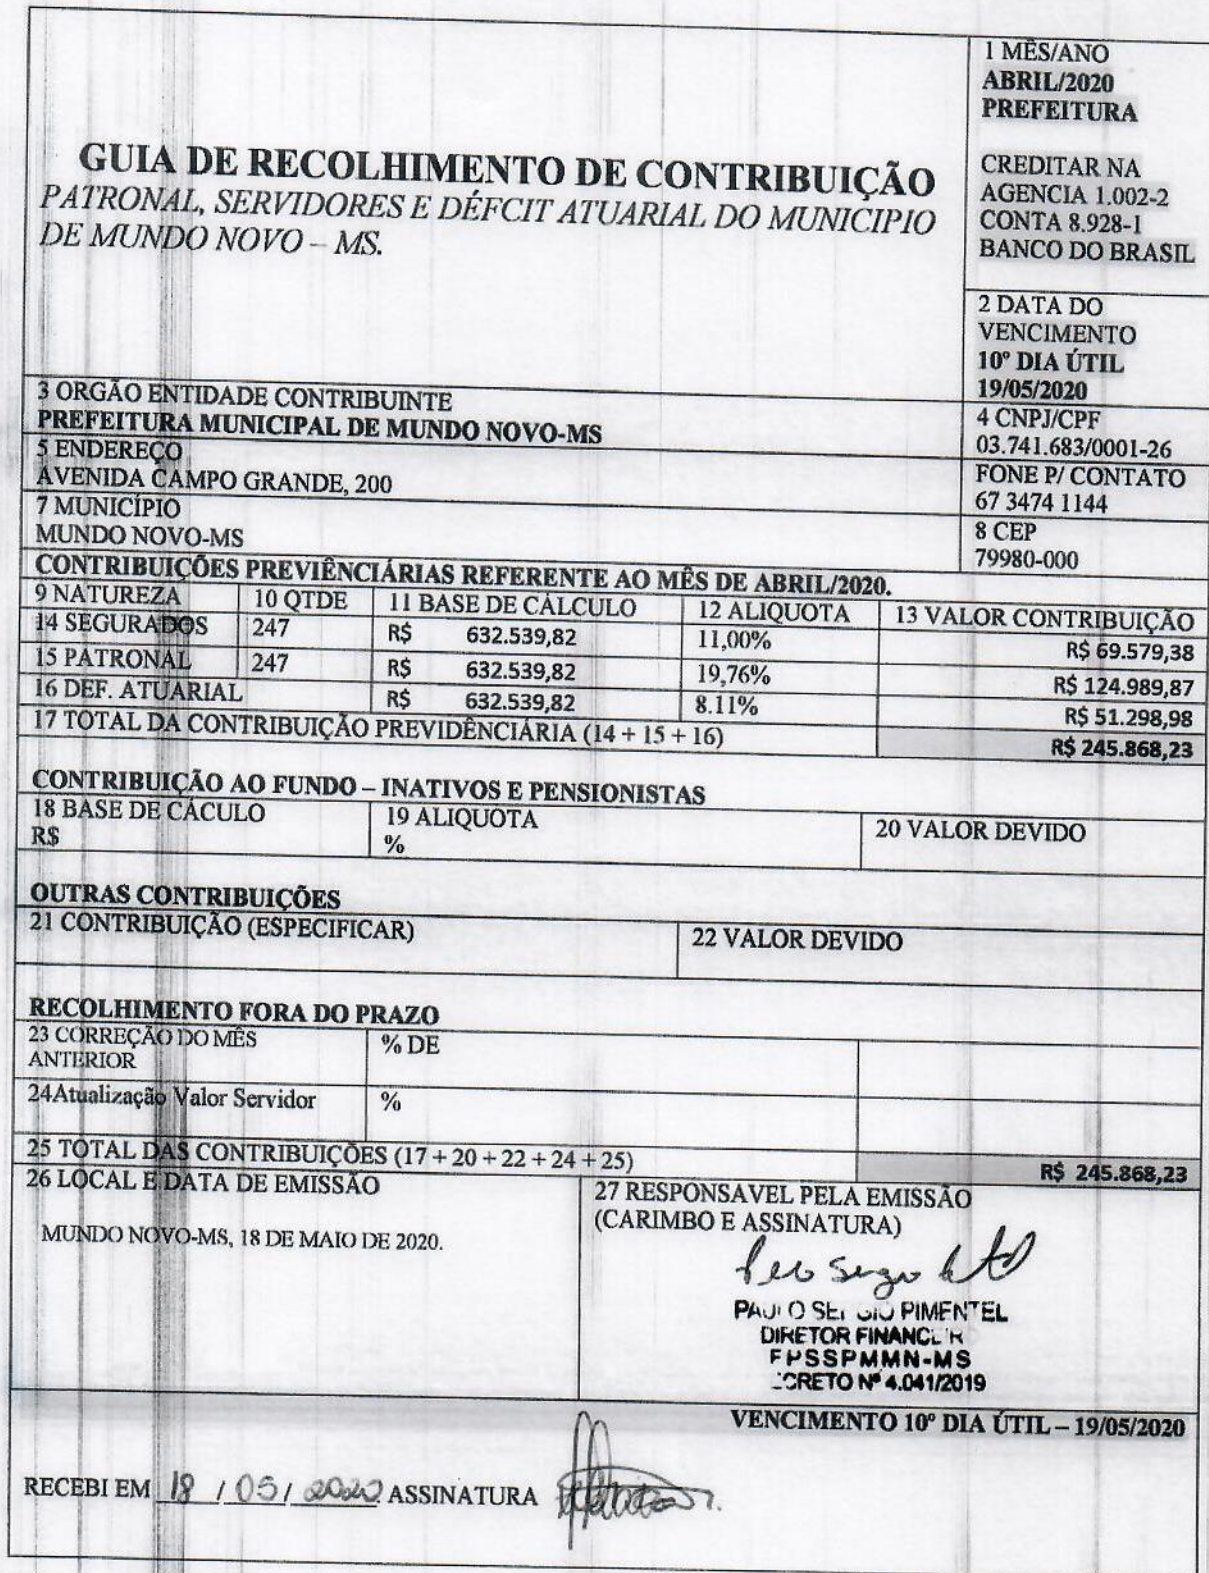 GUIA DE RECOLHIMENTO DE CONTRIBUIÇÃO
PATRONAL, SERVIDORES E DÉFCIT ATUARIAL DO MUNICIPIO
DE MUNDO NOVO – MS.
1 MÊS/ANO
ABRIL/2020
PREFEITURA
CREDITAR NA
AGENCIA 1.002-2
CONTA 8.928-1
BANCO DO BRASIL
2 DATA DO
VENCIMENTO
10º DIA ÚTIL
19/05/2020
3 ORGÃO ENTIDADE CONTRIBUINTE
PREFEITURA MUNICIPAL DE MUNDO NOVO-MS
4 CNPJ/CPF
03.741.683/0001-26
5 ENDEREÇO
AVENIDA CAMPO GRANDE, 200
FONE P/ CONTATO
67 3474 1144
7 MUNICÍPIO
MUNDO NOVO-MS
8 CEP
79980-000
CONTRIBUIÇÕES PREVIÊNCIÁRIAS REFERENTE AO MÊS DE ABRIL/2020.
9 NATUREZA 10 QTDE 11 BASE DE CÁLCULO 12 ALIQUOTA 13 VALOR CONTRIBUIÇÃO
14 SEGURADOS 247 R$ 632.539,82 11,00% R$ 69.579,38
15 PATRONAL 247 R$ 632.539,82 19,76% R$ 124.989,87
16 DEF. ATUARIAL R$ 632.539,82 8.11% R$ 51.298,98
17 TOTAL DA CONTRIBUIÇÃO PREVIDÊNCIÁRIA (14 + 15 + 16) R$ 245.868,23
CONTRIBUIÇÃO AO FUNDO – INATIVOS E PENSIONISTAS
18 BASE DE CÁCULO 19 ALIQUOTA 20 VALOR DEVIDO
R$ %
OUTRAS CONTRIBUIÇÕES
21 CONTRIBUIÇÃO (ESPECIFICAR) 22 VALOR DEVIDO
RECOLHIMENTO FORA DO PRAZO
23 CORREÇÃO DO MÊS % DE
ANTERIOR
24Atualização Valor Servidor %
25 TOTAL DAS CONTRIBUIÇÕES (17 + 20 + 22 + 24 + 25) R$ 245.868,23
26 LOCAL E DATA DE EMISSÃO
MUNDO NOVO-MS, 18 DE MAIO DE 2020.
27 RESPONSAVEL PELA EMISSÃO
(CARIMBO E ASSINATURA)
PIMENTEL
DIRETOR
FPSSPMMN-MS
Nº 4.041/2019
VENCIMENTO 10º DIA ÚTIL – 19/05/2020
RECEBI EM 18 / 05 / 2020 ASSINATURA